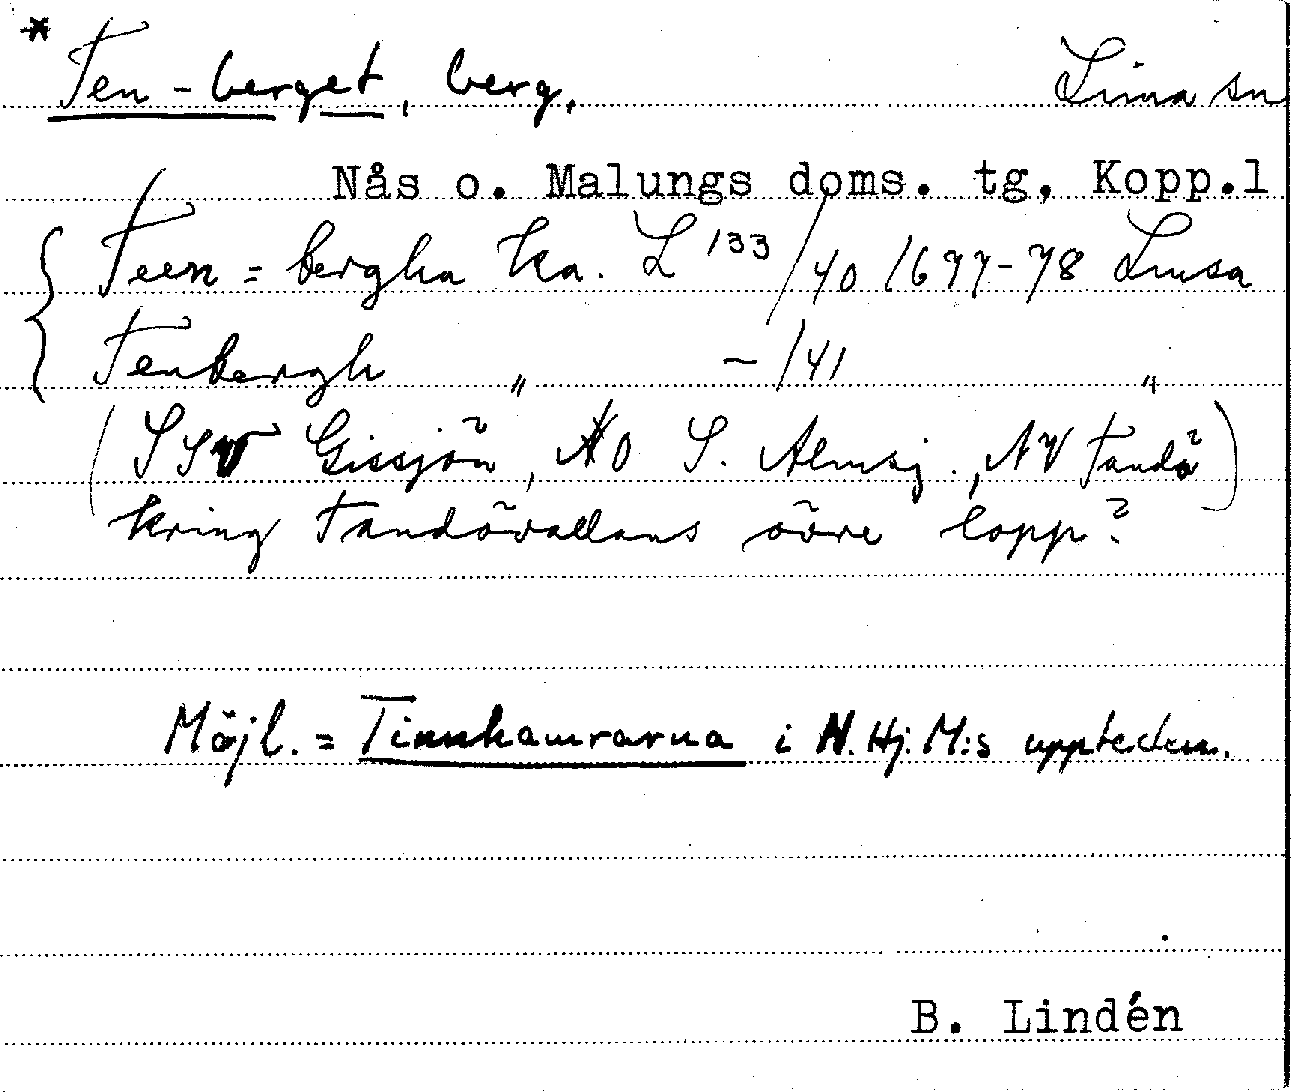 * Ten-berget, berg, Lima sn
Nås o. Malungs doms. tg, Kopp.l
Teen=bergha ka. L 133/40 1677-78 Limsa
Tenbergh " -/41 "
(SSV Gissjön, NO S. Almsj., NV Tandö)
kring Tandövallans övre lopp?
Möjl. = Tinnhamrarna i N.Hj.M:s uppteckn.
B. Lindén